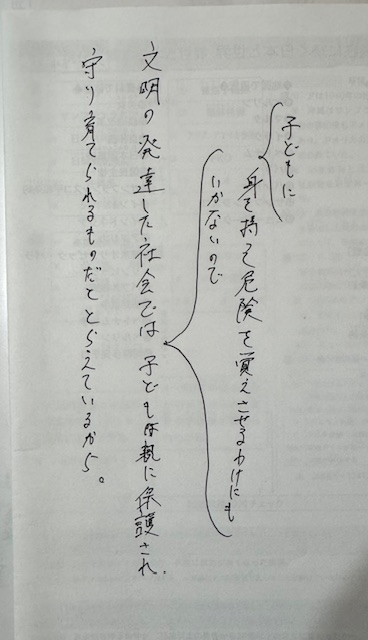 子どもに
身を持って危険を覚えさせるわけにも
いかないので
文明の発達した社会では子どもは親に保護され、
守り育てられるものだととらえているから。